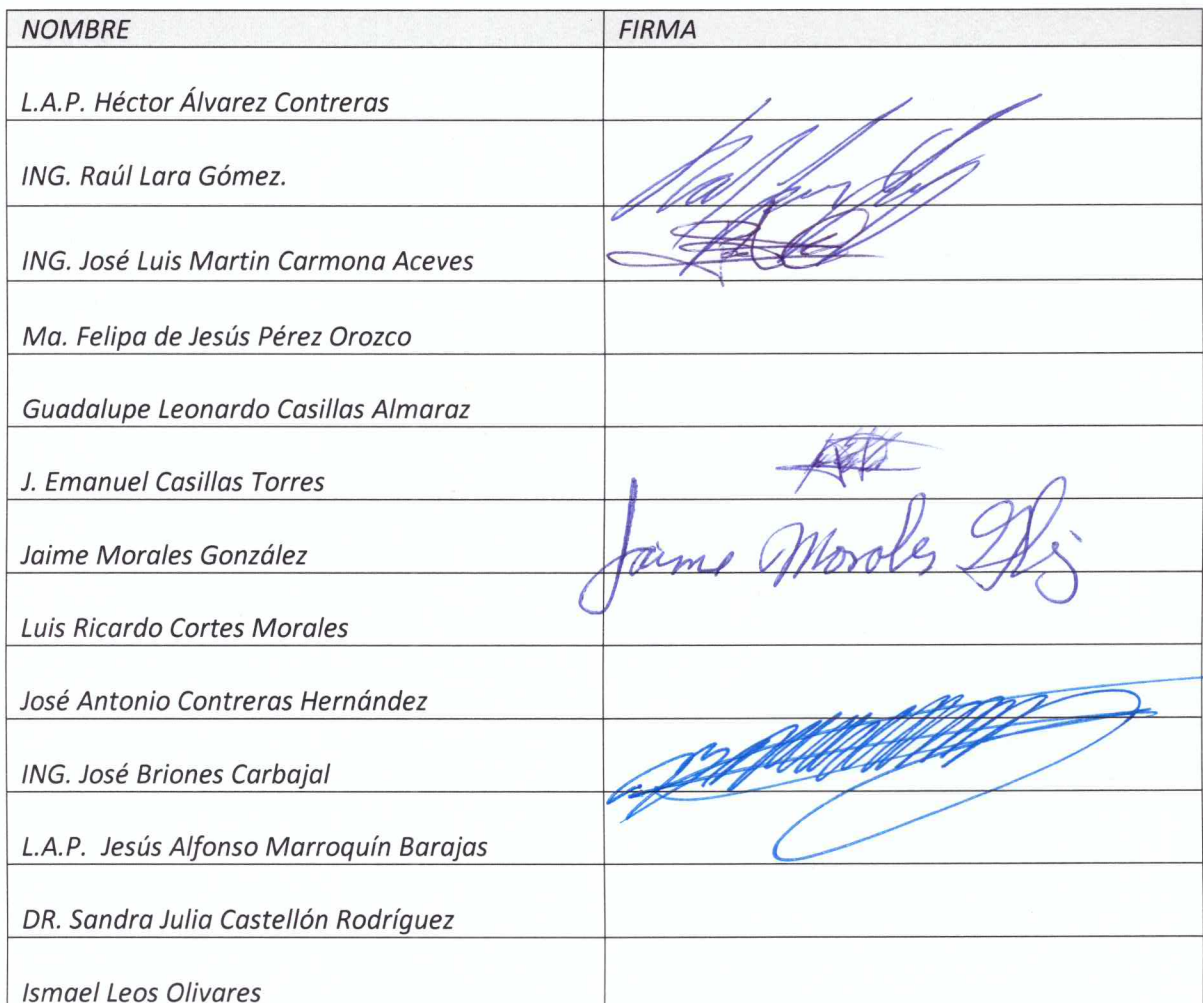 NOMBRE FIRMA
L.A.P. Héctor Álvarez Contreras
ING. Raúl Lara Gómez.
ING. José Luis Martin Carmona Aceves
Ma. Felipa de Jesús Pérez Orozco
Guadalupe Leonardo Casillas Almaraz
J. Emanuel Casillas Torres
Jaime Morales González Jaime Morales Glez
Luis Ricardo Cortes Morales
José Antonio Contreras Hernández
ING. José Briones Carbajal
L.A.P. Jesús Alfonso Marroquín Barajas
DR. Sandra Julia Castellón Rodríguez
Ismael Leos Olivares